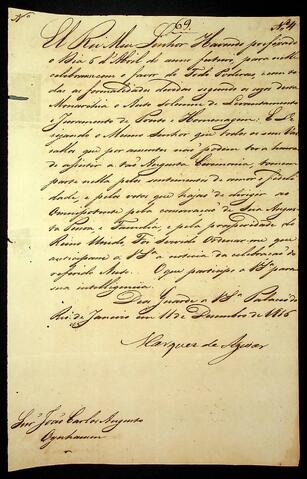 69
Nº 4
El Rei Meu Senhor Havendo preferido
o Dia 6 d'Abril do anno futuro, para nelle
celebrar com o favor do Todo Poderoso, e com to
das as formalidades devidas segundo os usos desta
Monarchia o Auto solemne do Levantamento
e Juramento de Preito e Homenagem: E De
sejando o Mesmo Senhor que todos os seus Vas
sallos que por auzentes não podem ter a honra
de assistir a tão Augusta Ceremonia, tomem
parte nella pelos sentimentos de amor e fideli
dade, e pelos votos que hajão de dirigir ao
Omnipotente pela conservação de Sua Augus
ta Pessoa e Familia, e pela prosperidade do
Reino Unido, Foi Servido Ordenar-me que
anticipasse a VSª a noticia da celebração do
referido Auto. O que participo a VSª para
sua intelligencia.
Deos Guarde a VSª Palacio do
Rio de Janeiro em 11 de Dezembro de 1816
Marquez de Aguiar
Snr João Carlos Augusto
Oynhausen